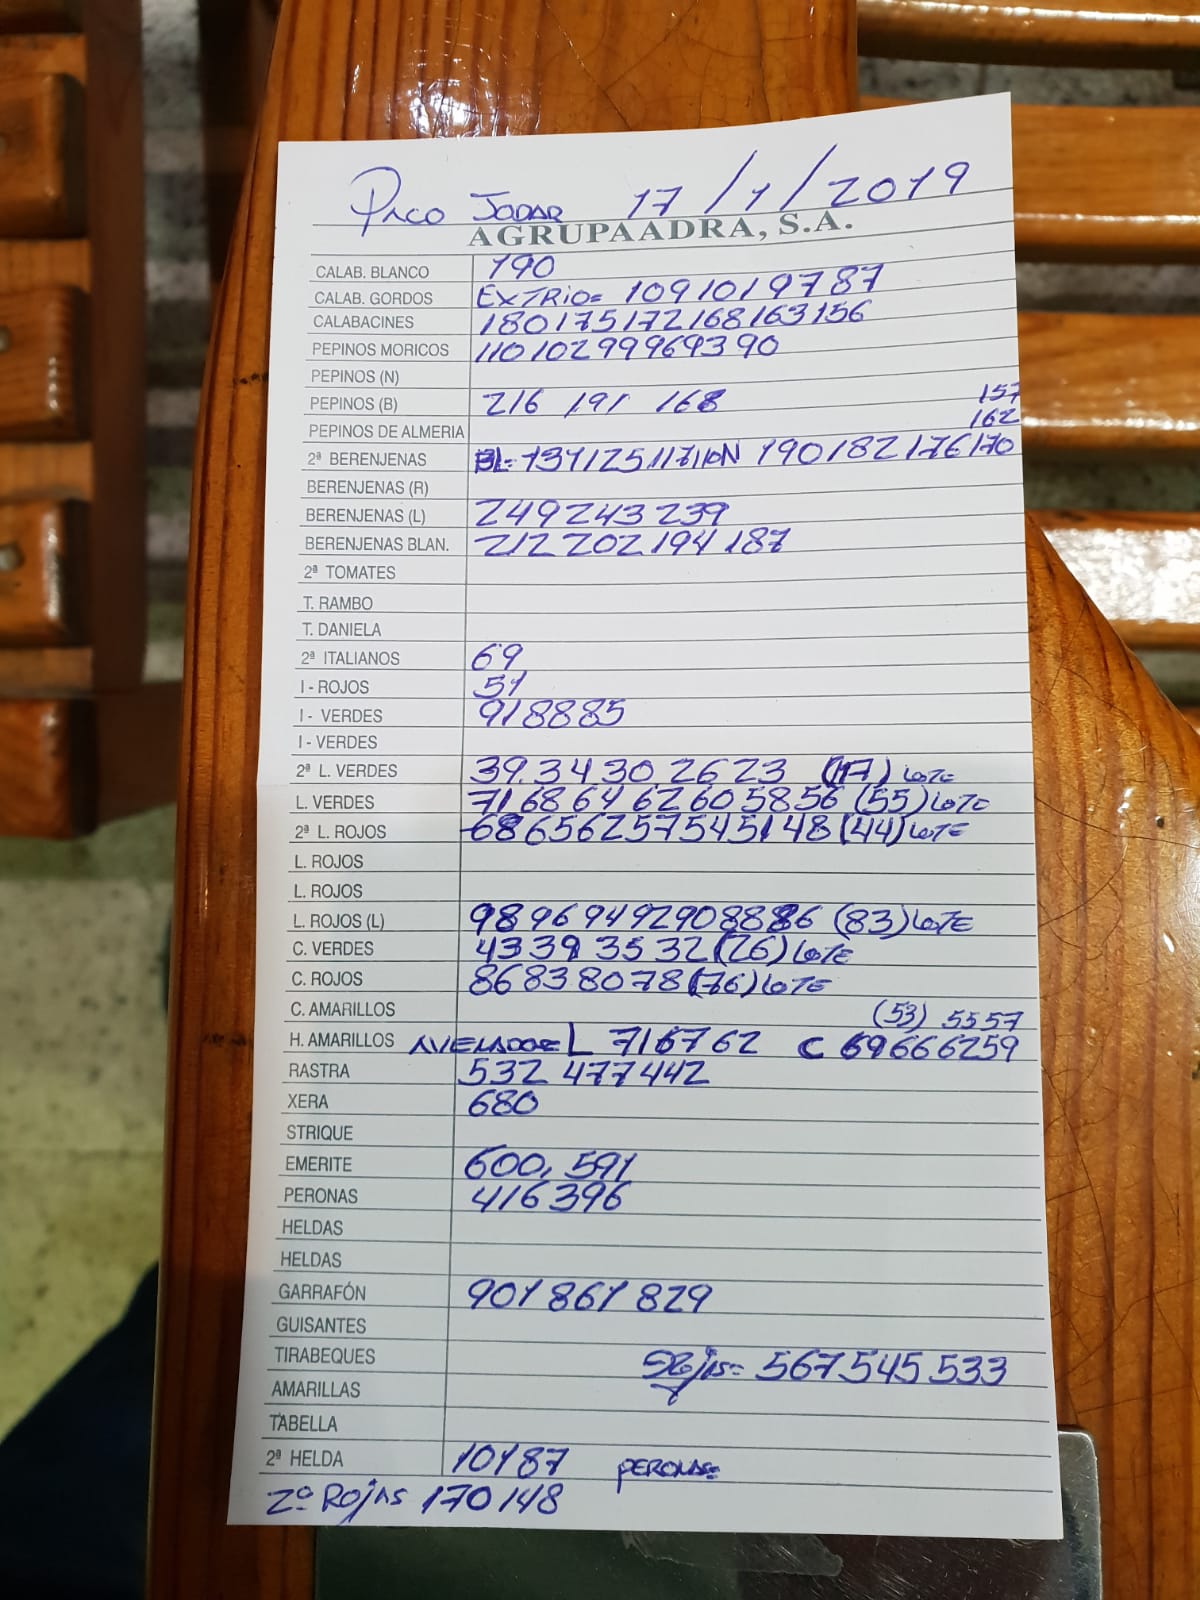 Paco Jodar 17/1/2019
AGRUPAADRA, S.A.
CALAB. BLANCO 190
CALAB. GORDOS EXTRIO= 109 101 97 87
CALABACINES 180 175 172 168 163 156
PEPINOS MORICOS 110 102 99 96 93 90
PEPINOS (N)
PEPINOS (B) 216 191 168 157
PEPINOS DE ALMERIA 162
2ª BERENJENAS BL= 134 125 117 110 N 190 182 176 170
BERENJENAS (R)
BERENJENAS (L) 249 243 239
BERENJENAS BLAN. 212 202 194 187
2ª TOMATES
T. RAMBO
T. DANIELA
2ª ITALIANOS 69
I - ROJOS 51
I - VERDES 91 88 85
I - VERDES
2ª L. VERDES 39. 34 30 26 23 (17) LOTE
L. VERDES 71 68 64 62 60 58 56 (55) LOTE
2ª L. ROJOS 68 65 62 57 54 51 48 (44) LOTE
L. ROJOS
L. ROJOS
L. ROJOS (L) 98 96 94 92 90 88 86 (83) LOTE
C. VERDES 43 39 35 32 (26) LOTE
C. ROJOS 86 83 80 78 (76) LOTE
C. AMARILLOS (53) 55 57
H. AMARILLOS L 71 67 62 C 69 66 62 59
RASTRA 532 477 442
XERA 680
STRIQUE
EMERITE 600, 591
PERONAS 416 396
HELDAS
HELDAS
GARRAFÓN 901 861 829
GUISANTES
TIRABEQUES Rojas= 567 545 533
AMARILLAS
TABELLA
2ª HELDA 101 87 PERONAS=
2º Rojas 170 148